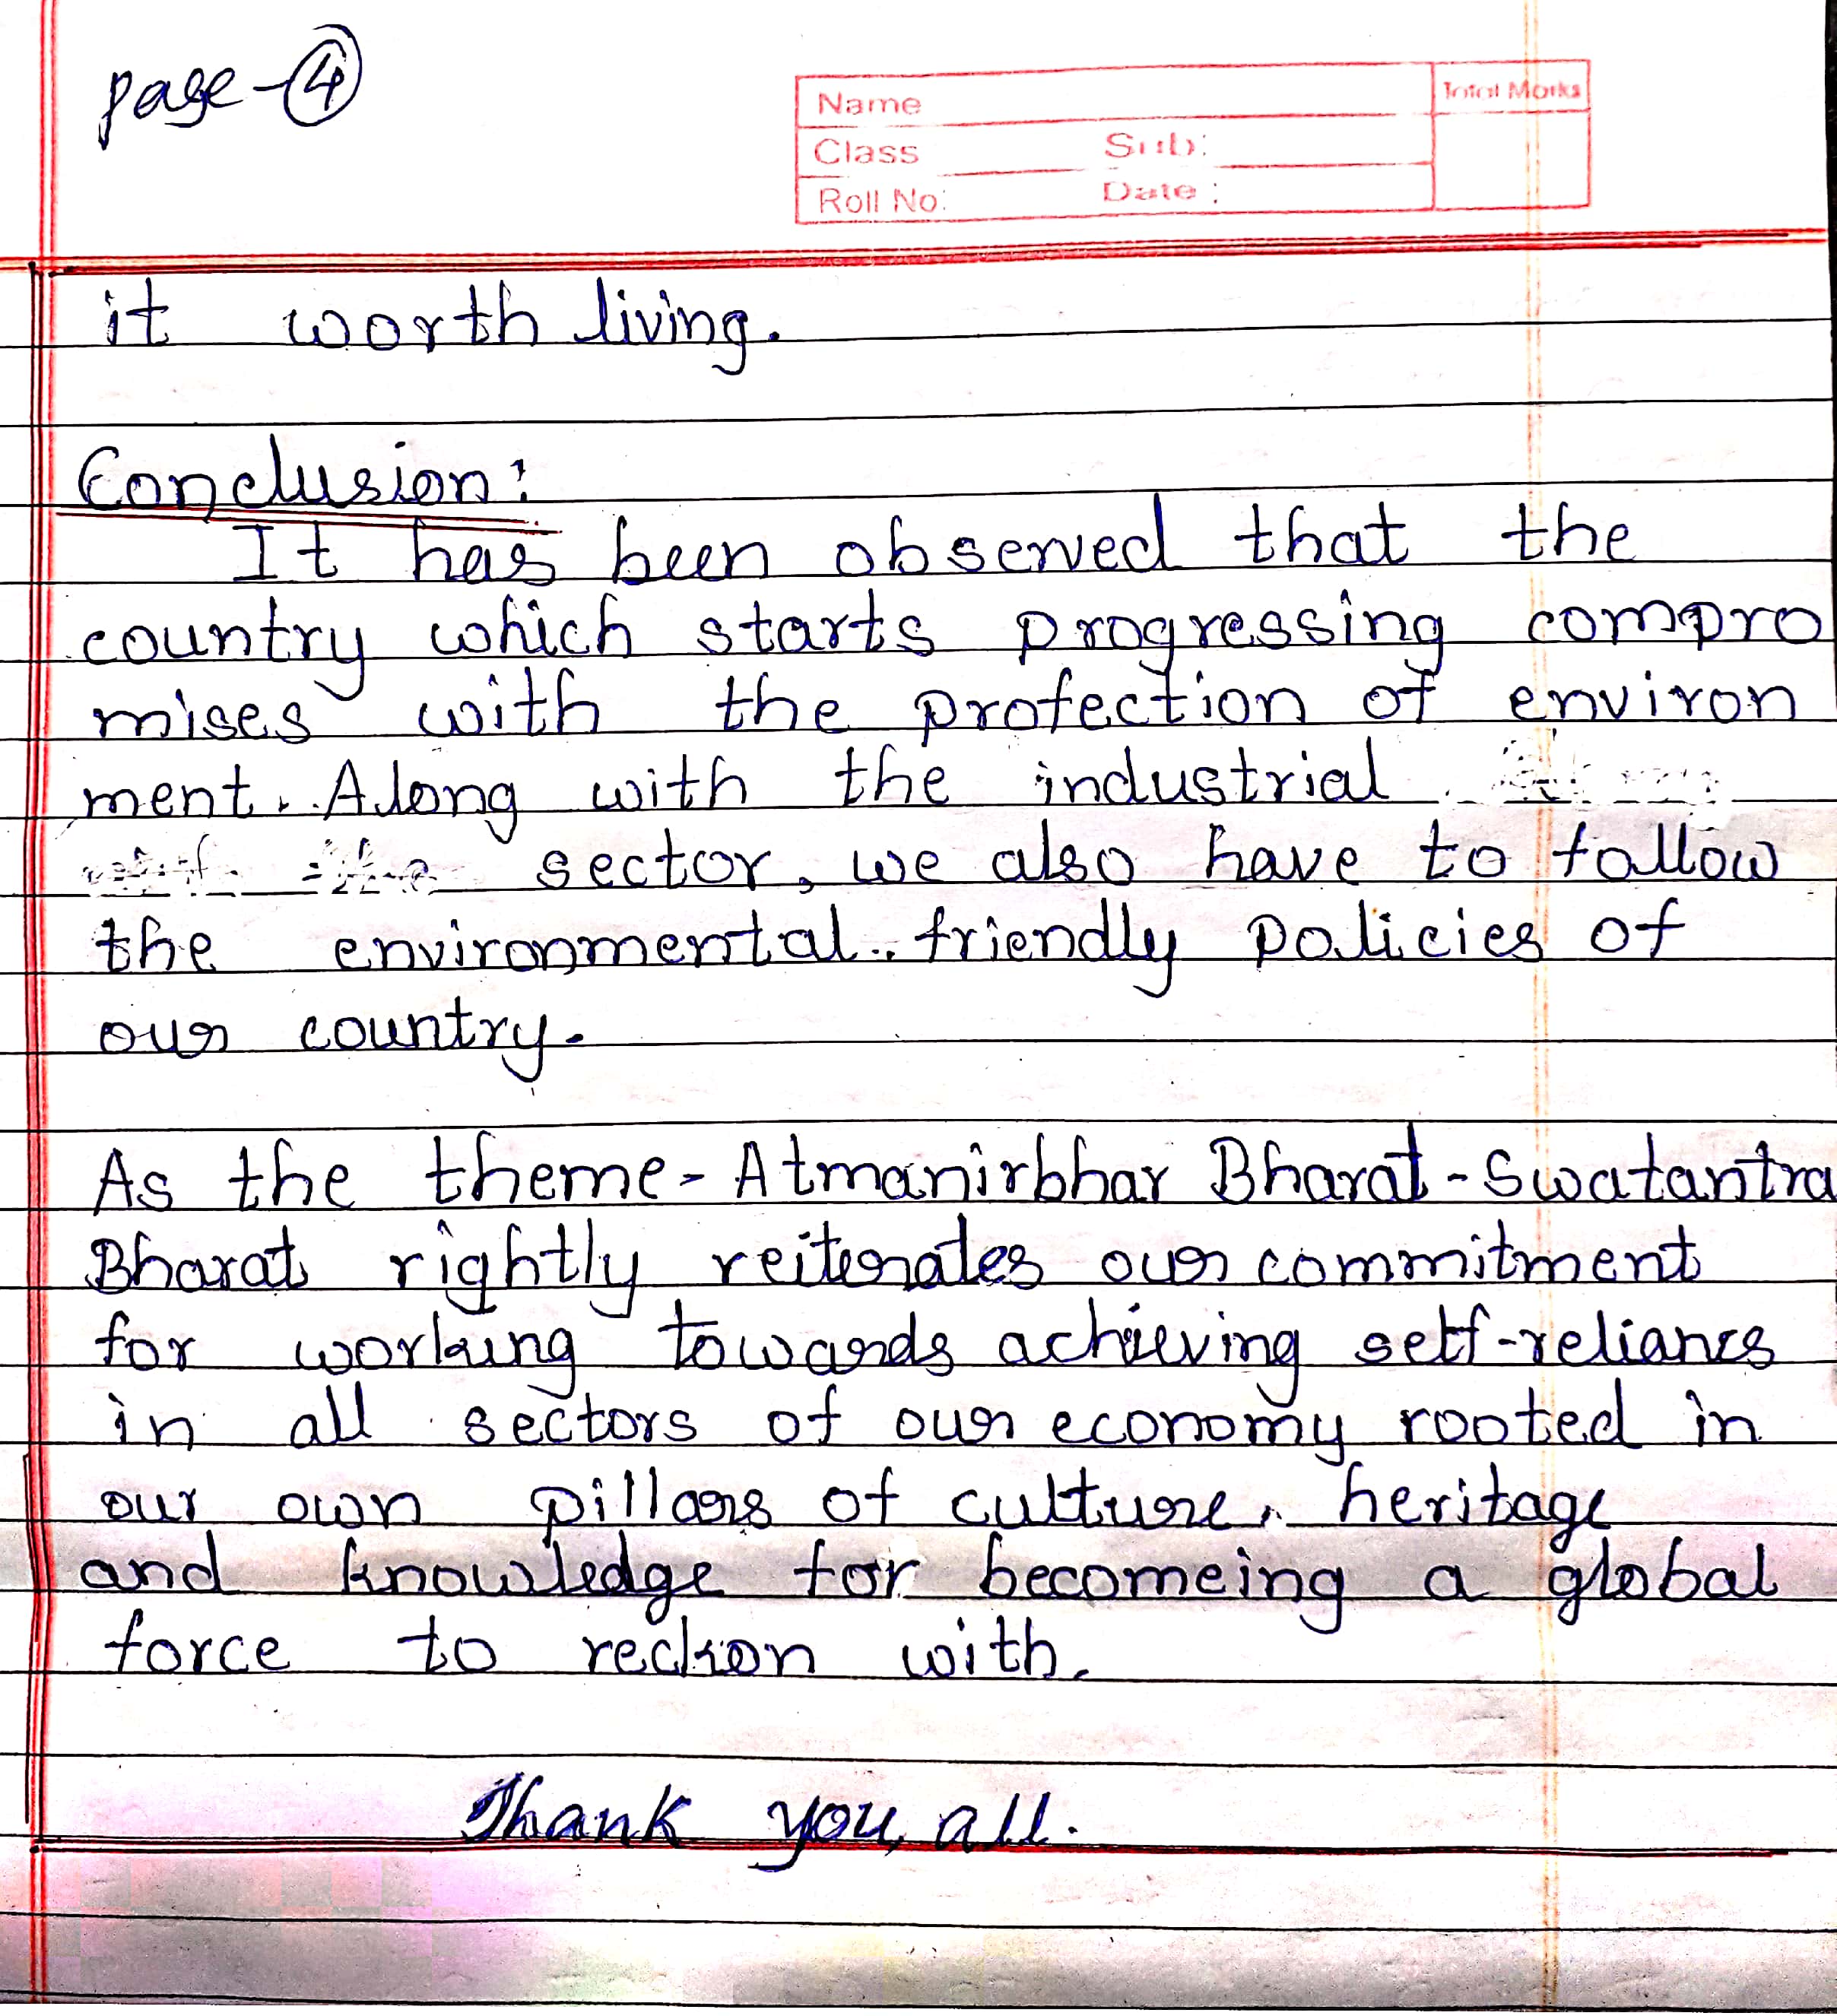 page-④
Name
Total Marks
Class Sub:
Roll No: Date:
it worth living.
Conclusion:
It has been observed that the
country which starts progressing compro
mises with the protection of environ
ment. Along with the industrial
sector, we also have to follow
the environmental.. friendly policies of
our country.
As the theme - Atmanirbhar Bharat - Swatantra
Bharat rightly reiterates our commitment
for working towards achieving self-reliance
in all sectors of our economy rooted in
our own pillars of culture, heritage
and knowledge for becomeing a global
force to reckon with.
Thank you all.